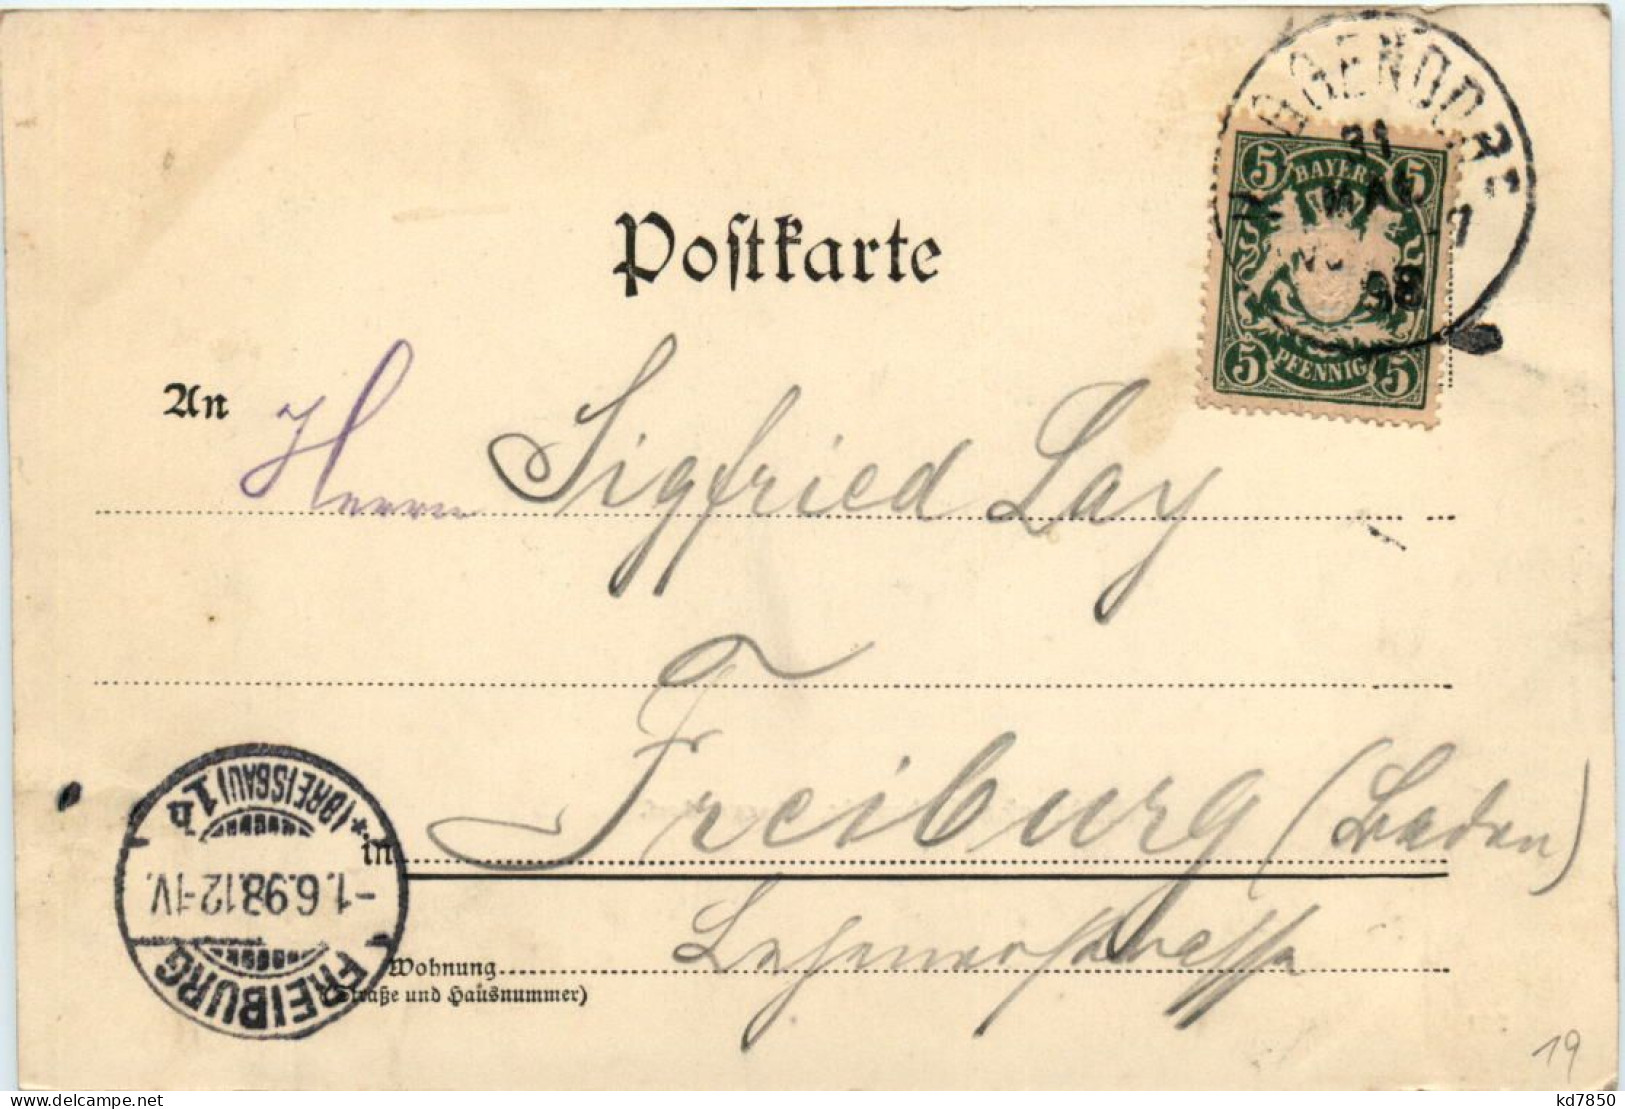 Postkarte
5 BAYERN 5
5 PFENNIG 5
31
MAI
98
An Herrn Sigfried Lay
Freiburg (Baden)
in
Wohnung
(Straße und Hausnummer)
FREIBURG
-1.6.98.12-1V.
*(BREISGAU)1b
19
kd7850